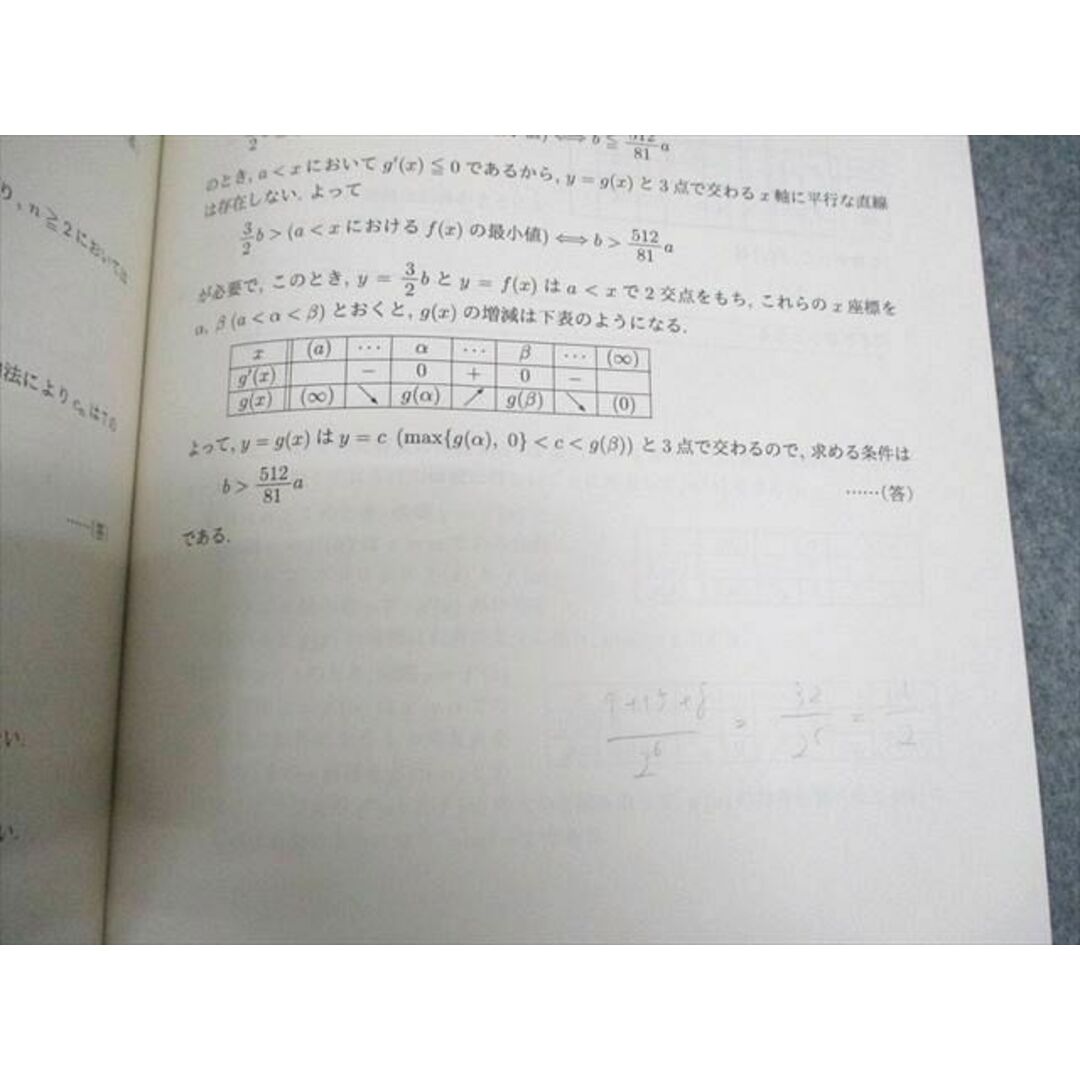 り, n≧2においては
法により cₙ は7の
……(答)
い.
い.
⟺ b ≦ 512/81 a
のとき, a < x において g′(x) ≦ 0 であるから, y = g(x) と 3 点で交わる x 軸に平行な直線
は存在しない. よって
3/2 b > (a < x における f(x) の最小値) ⟺ b > 512/81 a
が必要で, このとき, y = 3/2 b と y = f(x) は a < x で 2 交点をもち, これらの x 座標を
α, β (a < α < β) とおくと, g(x) の増減は下表のようになる.
x (a) ⋯ α ⋯ β ⋯ (∞)
g′(x) − 0 + 0 −
g(x) (∞) ↘ g(α) ↗ g(β) ↘ (0)
よって, y = g(x) は y = c (max{g(α), 0} < c < g(β)) と 3 点で交わるので, 求める条件は
b > 512/81 a ……(答)
である.